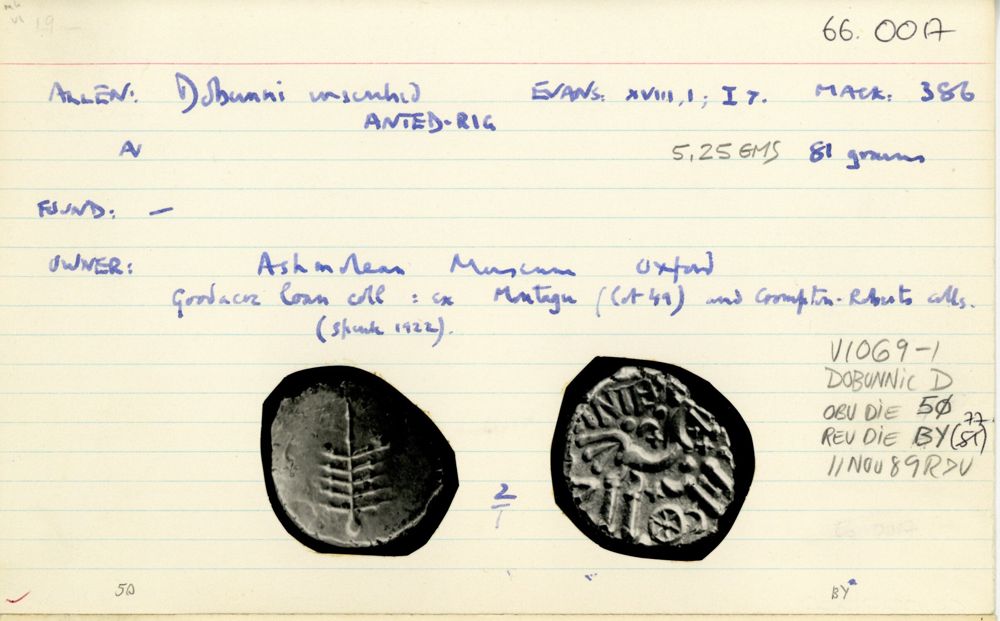 66.0017
ALLEN: Dobunni inscribed EVANS: XVIII,1; I 7. MACK: 386
ANTED-RIG
AV 5,25 GMS 81 grains
FOUND: —
OWNER: Ashmolean Museum Oxford
Goodacre loan coll : ex Montagu (lot 49) and Crompton-Roberts colls.
(Spink 1922).
V1069-1
DOBUNNIC D
OBV DIE 50
REV DIE BY (77)
11 NOV 89 RDV
NTED
2/1
50 BY